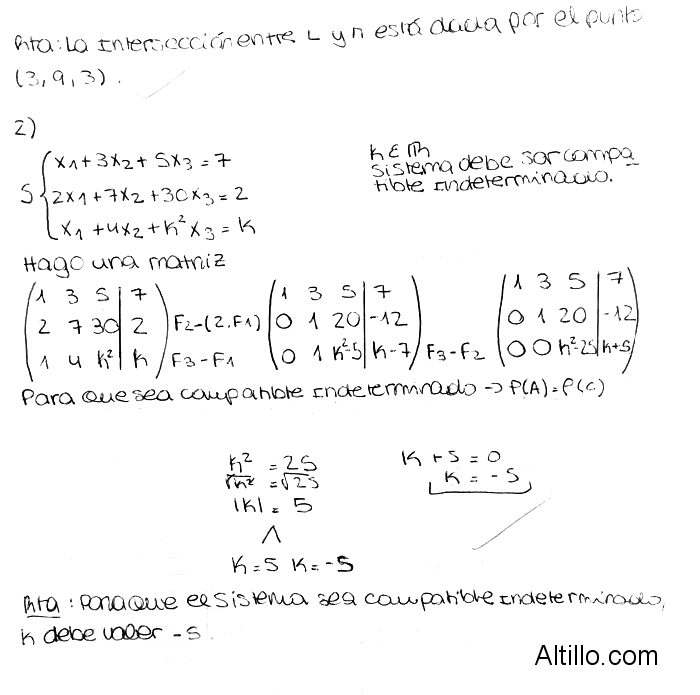 Rta: La Intersección entre L y π está dada por el punto
(3, 9, 3).
2)
S { x1 + 3x2 + 5x3 = 7
2x1 + 7x2 + 30x3 = 2
x1 + 4x2 + k²x3 = k
k ∈ ℝ
Sistema debe ser compa
tible Indeterminado.
Hago una matriz
(1 3 5 | 7) (1 3 5 | 7) (1 3 5 | 7)
(2 7 30 | 2) F2-(2.F1) (0 1 20 | -12) (0 1 20 | -12)
(1 4 k² | k) F3-F1 (0 1 k²-5 | k-7) F3-F2 (0 0 k²-25 | k+5)
Para que sea compatible Indeterminado -> ρ(A) = ρ(C)
k² = 25 k + 5 = 0
√k² = √25 k = -5
|k| = 5
∧
k = 5 k = -5
Rta: Para que el Sistema sea compatible Indeterminado,
k debe valer -5.
Altillo.com